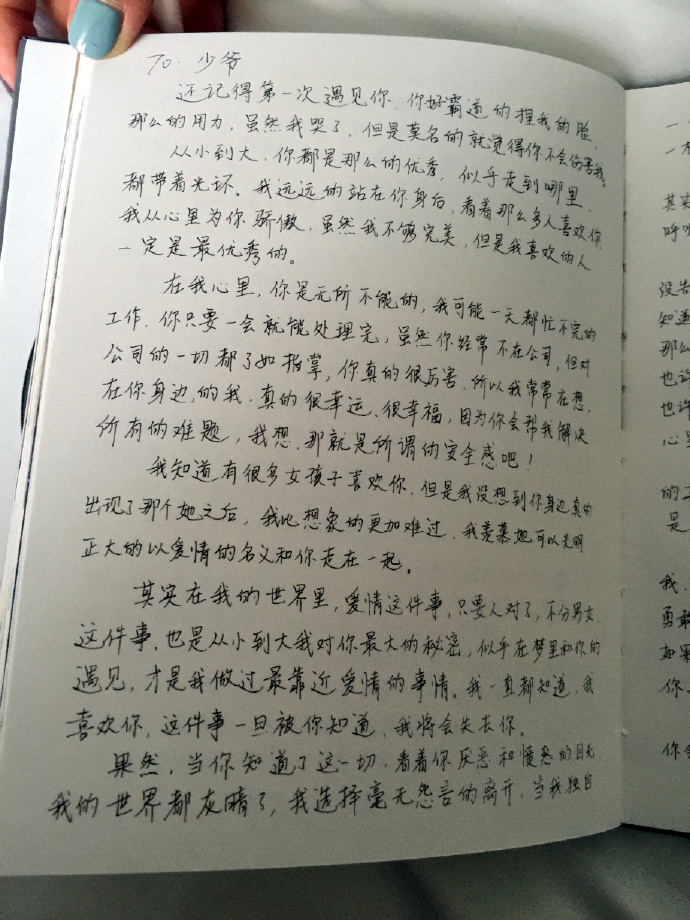 To. 少爷
还记得第一次遇见你，你好霸道的捏我的脸，
那么的用力，虽然我哭了，但是莫名的就觉得你不会伤害我。
从小到大，你都是那么的优秀，似乎走到哪里，
都带着光环。我远远的站在你身后，看着那么多人喜欢你，
我从心里为你骄傲，虽然我不够完美，但是我喜欢的人
一定是最优秀的。
在我心里，你是无所不能的，我可能一天都忙不完的
工作，你只要一会就能处理完，虽然你经常不在公司，但对
公司的一切都了如指掌，你真的很厉害，所以我常常在想，
在你身边的我，真的很幸运、很幸福，因为你会帮我解决
所有的难题，我想，那就是所谓的安全感吧！
我知道有很多女孩子喜欢你，但是我没想到你身边真的
出现了那个她之后，我比想象的更加难过，我羡慕她可以光明
正大的以爱情的名义和你走在一起。
其实在我的世界里，爱情这件事，只要人对了，不分男女，
这件事，也是从小到大我对你最大的秘密，似乎在梦里和你的
遇见，才是我做过最靠近爱情的事情。我一直都知道，我
喜欢你，这件事一旦被你知道，我将会失去你。
果然，当你知道了这一切，看着你厌恶和愤怒的目光
我的世界都灰暗了，我选择毫无怨言的离开，当我独自
一
一
其实
呼
没告
知道
那么
也许
也许
心里
的工
是
我，
勇敢
如果
你
你会